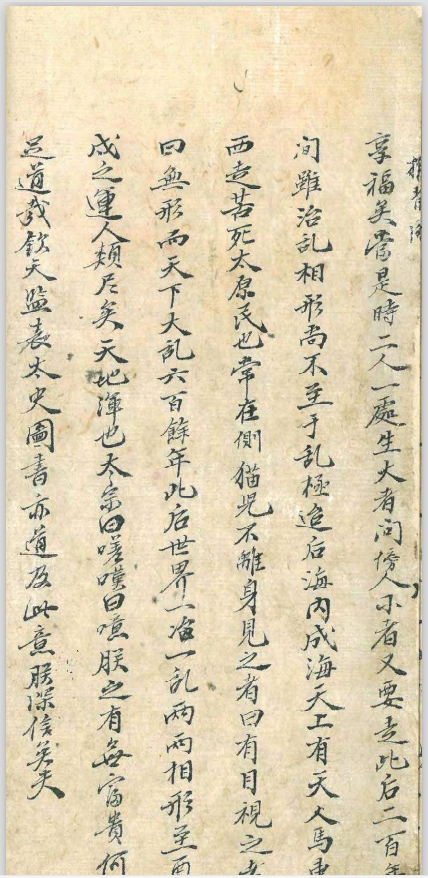 享福矣當是時二人一處生大者問傍人小者又要走此后二百年
洵雖治乱相形尚不至于乱極迨后海內成海天上有天人馬東
西走苦死太原民也常在側猫児不離身見之者曰有目視之者
曰無形而天下大乱六百餘年此后世界一治一乱两两相形至酉
戍之運人類尽矣天地渾也太宗曰嗟嘆曰噫朕之有每富貴何
足道哉欽天監袁太史圖書亦道及此意朕深信矣夫